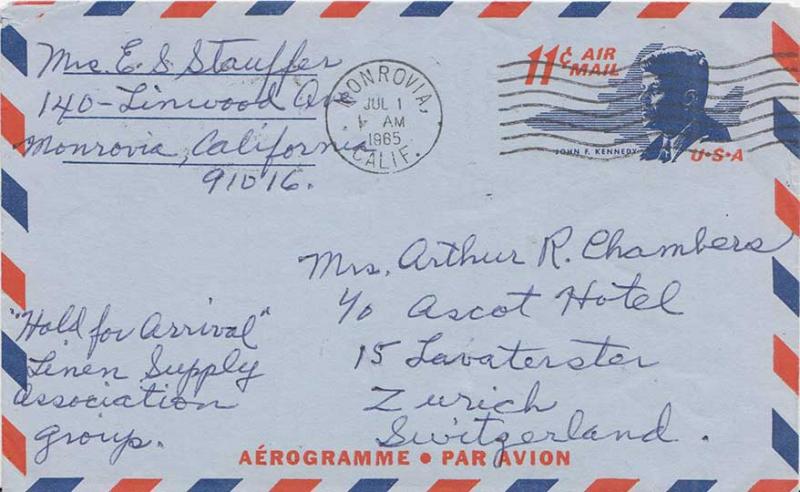 Mrs. E S Stauffer
140-Linwood Ave
Monrovia, California
91016.
MONROVIA,
JUL 1
AM
1965
CALIF.
11¢ AIR
MAIL
JOHN F. KENNEDY
U·S·A
Mrs. Arthur R. Chambers
c/o Ascot Hotel
15 Lavaterster
Zurich
Switzerland.
"Hold for Arrival"
Linen Supply
Association
group.
AÉROGRAMME • PAR AVION